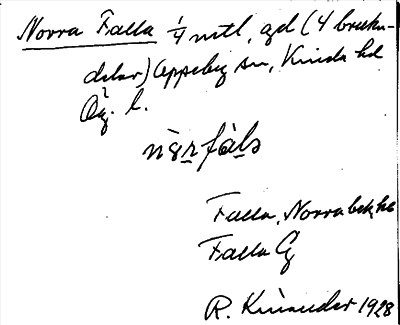 Norra Falla 1/4 mtl, gd (4 brukn-
delar) Oppeby sn, Kinda hd
Ög. l.
Falla, Norra bek. hb
Falla G
R. Kinander 1928